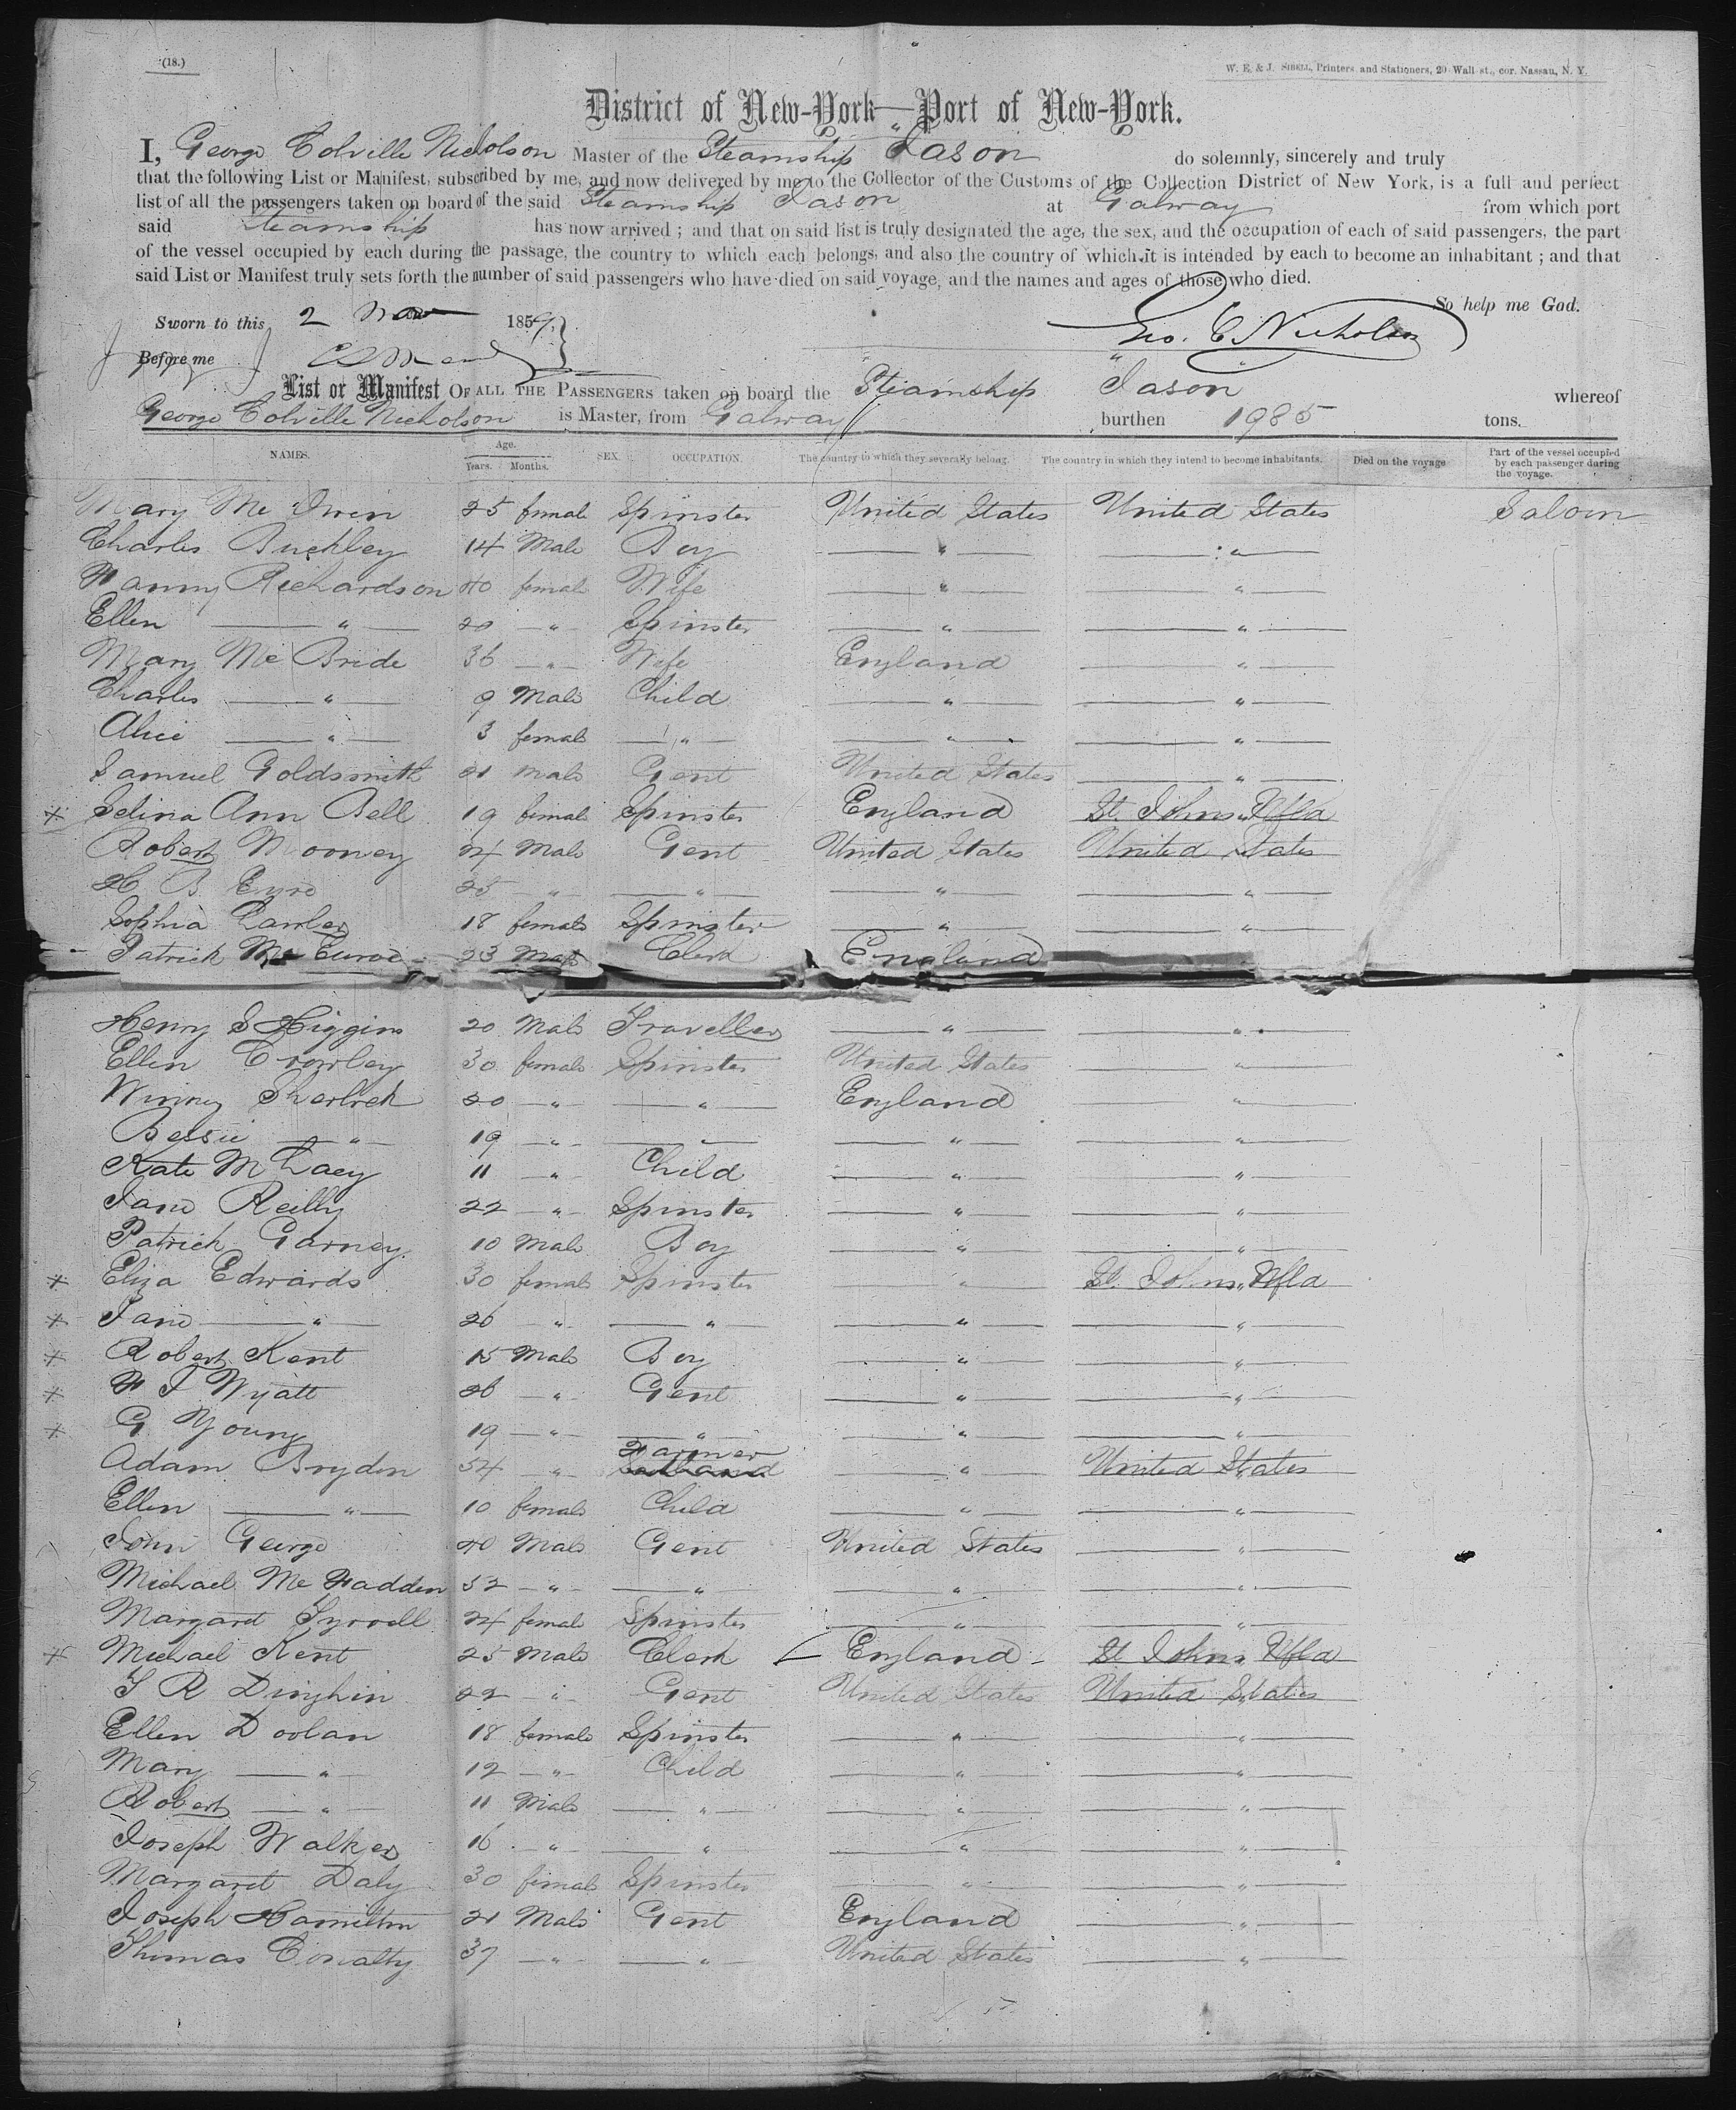 (18.)
W. E. & J. SIBELL, Printers and Stationers, 20 Wall-st., cor. Nassau, N. Y.
District of New-York—Port of New-York.
I, George Colville Nicholson Master of the Steamship "Jason do solemnly, sincerely and truly
that the following List or Manifest, subscribed by me, and now delivered by me to the Collector of the Customs of the Collection District of New York, is a full and perfect
list of all the passengers taken on board of the said Steamship Jason at Galway from which port
said Steamship has now arrived; and that on said list is truly designated the age, the sex, and the occupation of each of said passengers, the part
of the vessel occupied by each during the passage, the country to which each belongs, and also the country of which it is intended by each to become an inhabitant; and that
said List or Manifest truly sets forth the number of said passengers who have died on said voyage, and the names and ages of those who died.
So help me God.
Sworn to this 2 Nov 1859.
Geo. C. Nicholson
Before me
List or Manifest OF ALL THE PASSENGERS taken on board the Steamship "Jason" whereof
George Colville Nicholson is Master, from Galway burthen 1985 tons.
NAMES. Age. Years. Months. SEX. OCCUPATION. The country to which they severally belong. The country in which they intend to become inhabitants. Died on the voyage Part of the vessel occupied by each passenger during the voyage.
Mary Mc 25 female Spinster United States United States Saloon
Charles Buckley 14 Male Boy " "
Fanny Richardson 40 female Wife " "
Ellen " 20 " Spinster " "
Mary Mc Bride 36 " Wife England "
Charles " 9 Male Child " "
Alice " 3 female " " "
Samuel Goldsmith 21 Male Gent United States "
+ Selina Ann Bell 19 female Spinster England St. Johns Nfld
Robert Mooney 24 Male Gent United States United States
H. B. Eyre 25 " " " "
Sophia 18 female Spinster " "
Patrick Mc 23 Male Clerk England
Henry S Higgins 20 Male Traveller " "
Ellen Crowley 30 female Spinster United States "
Winny Sherlock 20 " " England "
Betsie " 19 " " " "
Kate M Lacy 11 " Child " "
Jane Reilly 22 " Spinster " "
Patrick Garney 10 Male Boy " "
+ Eliza Edwards 30 female Spinster " St. Johns Nfld
+ Jane " 26 " " " "
+ Robert Kent 15 Male Boy " "
+ F J Wyatt 26 " Gent " "
+ G Young 19 " " " "
Adam Bryden 54 " Farmer " United States
Ellen " 10 female Child " "
John George 40 Male Gent United States "
Michael Mc Fadden 32 " " " "
Margaret Tyrrell 24 female Spinster " "
+ Michael Kent 25 Male Clerk England St Johns Nfld
22 " Gent United States United States
Ellen Doolan 18 female Spinster " "
Mary " 12 " Child " "
Robert " 11 Male " " "
Joseph Walker 16 " " " "
Margaret Daly 30 female Spinster " "
Joseph Hamilton 21 Male Gent England "
Thomas 37 " " United States "